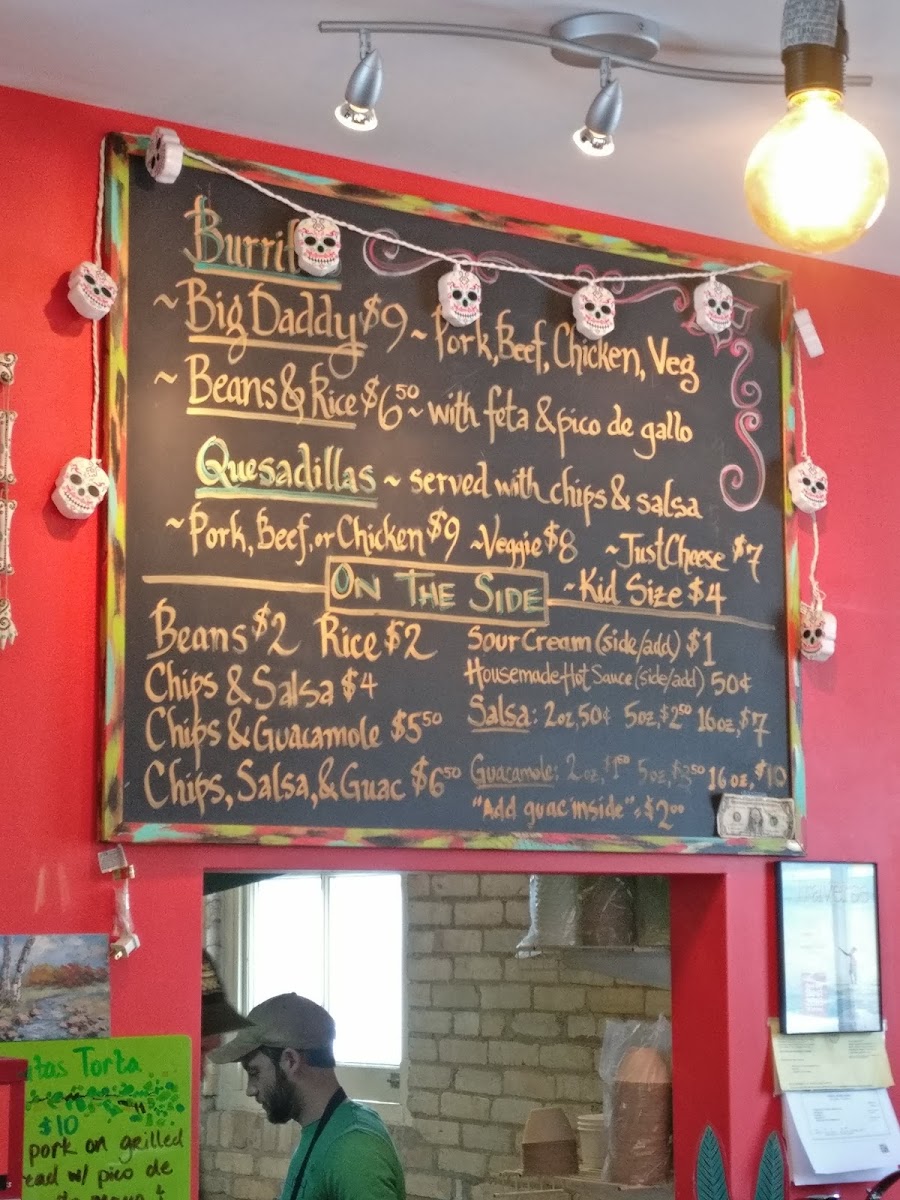 ~Big Daddy $9 ~ Pork, Beef, Chicken, Veg
~ Beans & Rice $6.50 ~ with feta & pico de gallo
Quesadillas ~ served with chips & salsa
~ Pork, Beef, or Chicken $9 ~Veggie $8 ~Just Cheese $7
~Kid Size $4
ON THE SIDE
Beans $2 Rice $2
Chips & Salsa $4
Chips & Guacamole $5.50
Chips, Salsa, & Guac $6.50
Sour Cream (side/add) $1
Housemade Hot Sauce (side/add) 50¢
Salsa: 2oz, 50¢ 5oz, $2.50 16oz, $7
Guacamole: 2oz, $1.50 5oz, $3.50 16oz, $10
"Add guac inside" = $2.00
Torta
$10
pork on grilled
w/ pico de